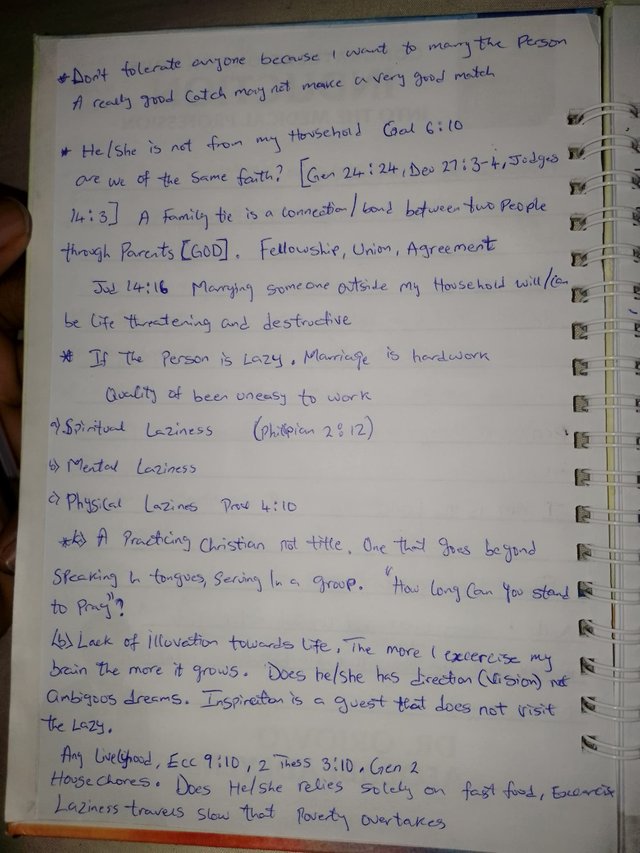 * Don't tolerate anyone because I want to marry the Person
A really good Catch may not make a very good match
* He/She is not from my Household Gal 6:10
are we of the same faith? [Gen 24:24, Deu 27:3-4, Judges
14:3] A Family tie is a connection/bond between two People
through Parents [GOD]. Fellowship, Union, Agreement
Jud 14:16 Marrying someone outside my Household will/can
be life threatening and destructive
* If the Person is Lazy. Marriage is hardwork
Quality of been uneasy to work
a) Spiritual Laziness (Philipian 2:12)
b) Mental Laziness
c) Physical Lazines Prov 4:10
A Practicing Christian not title. One that goes beyond
Speaking in tongues, Serving In a group. "How long Can You stand
to Pray"?
(b) Lack of illovation towards life. The more I excercise my
brain the more it grows. Does he/she has direction (Vision) not
ambigous dreams. Inspiration is a guest that does not visit
the Lazy.
Any Livelyhood, Ecc 9:10, 2 Thess 3:10, Gen 2
House chores. Does He/she relies solely on fast food, Excercise
Laziness travels slow that Poverty overtakes